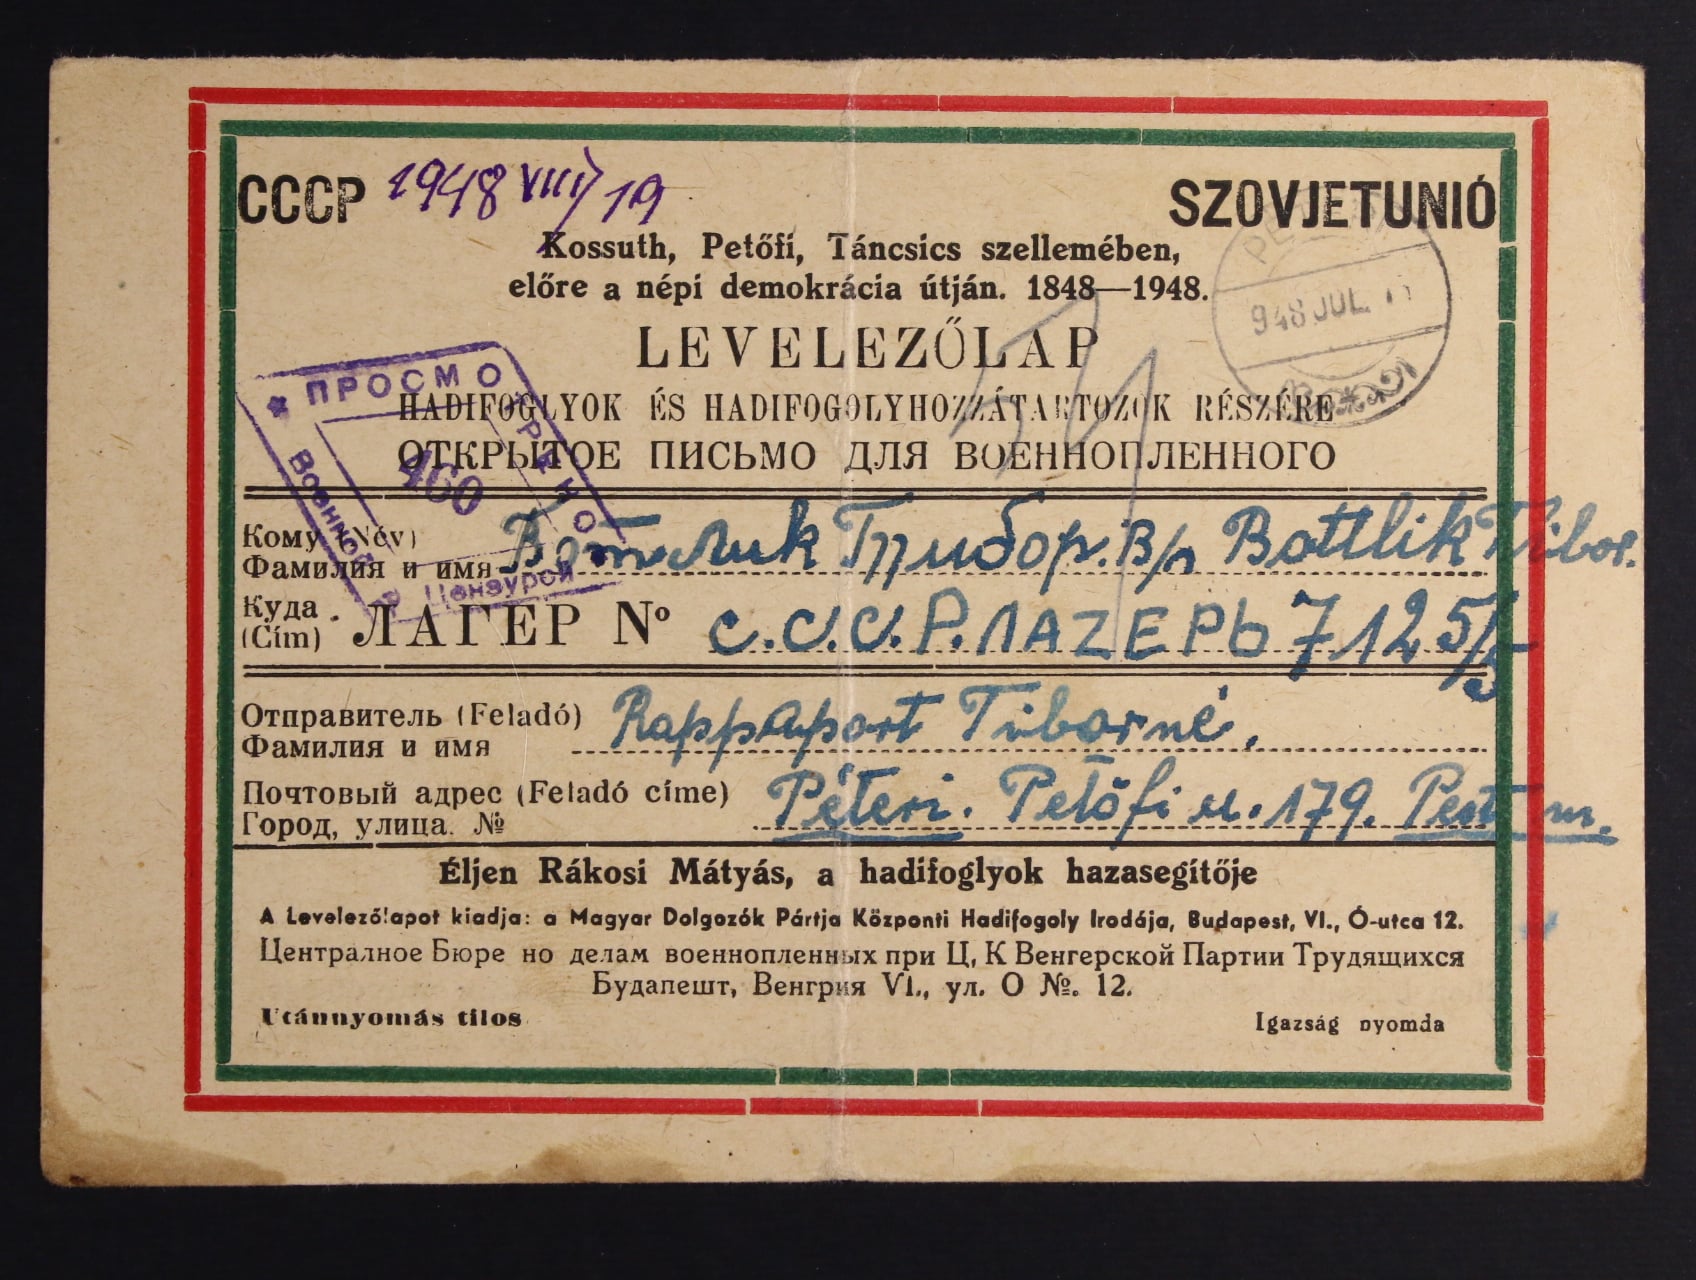 СССР 1948 VIII/19 SZOVJETUNIÓ
Kossuth, Petőfi, Táncsics szellemében,
előre a népi demokrácia útján. 1848—1948.
948 JUL.
LEVELEZŐLAP
HADIFOGLYOK ÉS HADIFOGOLYHOZZÁTARTOZÓK RÉSZÉRE
ОТКРЫТОЕ ПИСЬМО ДЛЯ ВОЕННОПЛЕННОГО
ПРОСМОТРЕНО
Военной
460
Цензурой
Кому (Név)
Фамилия и имя Ботлик Тибор. В/п Bottlik Tibor.
Куда
(Cím) ЛАГЕР № С.С.С.Р. ЛАГЕРЬ 7125/5
Отправитель (Feladó)
Фамилия и имя Rappaport Tiborné,
Почтовый адрес (Feladó címe)
Город, улица. № Péteri. Petőfi u. 179. Pest m.
Éljen Rákosi Mátyás, a hadifoglyok hazasegítője
A Levelezőlapot kiadja: a Magyar Dolgozók Pártja Központi Hadifogoly Irodája, Budapest, VI., Ó-utca 12.
Централное Бюре но делам военнопленных при Ц, К Венгерской Партии Трудящихся
Будапешт, Венгрия VI., ул. О №. 12.
Utánnyomás tilos Igazság nyomda